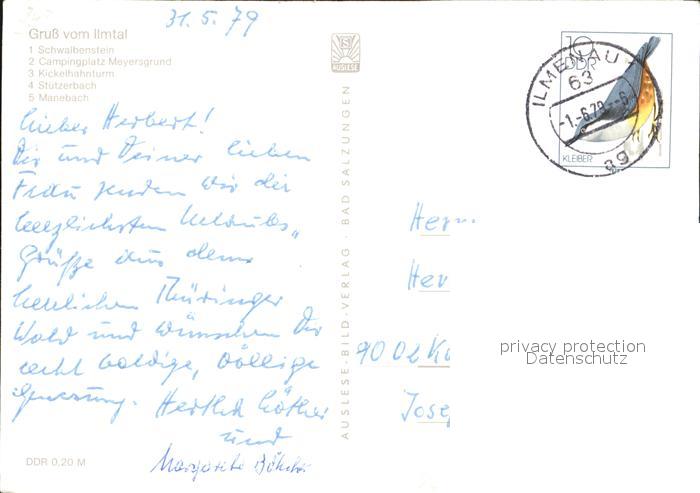 31. 5. 79
Gruß vom Ilmtal
1 Schwalbenstein
2 Campingplatz Meyersgrund
3 Kickelhahnturm
4 Stützerbach
5 Manebach
Lieber Herbert!
Dir und Deiner lieben
Frau senden wir die
herzlichsten Urlaubs„
Grüße aus dem
herrlichen Thüringer
Wald und wünschen Dir
recht baldige, völlige
Genesung. Hertha
und
Margarete
DDR 0,20 M
AUSLESE
AUSLESE-BILD-VERLAG · BAD SALZUNGEN
10
DDR
KLEIBER
ILMENAU
63
-1.-6.79--6
Herrn
Her
9002 K
Jose
privacy protection
Datenschutz